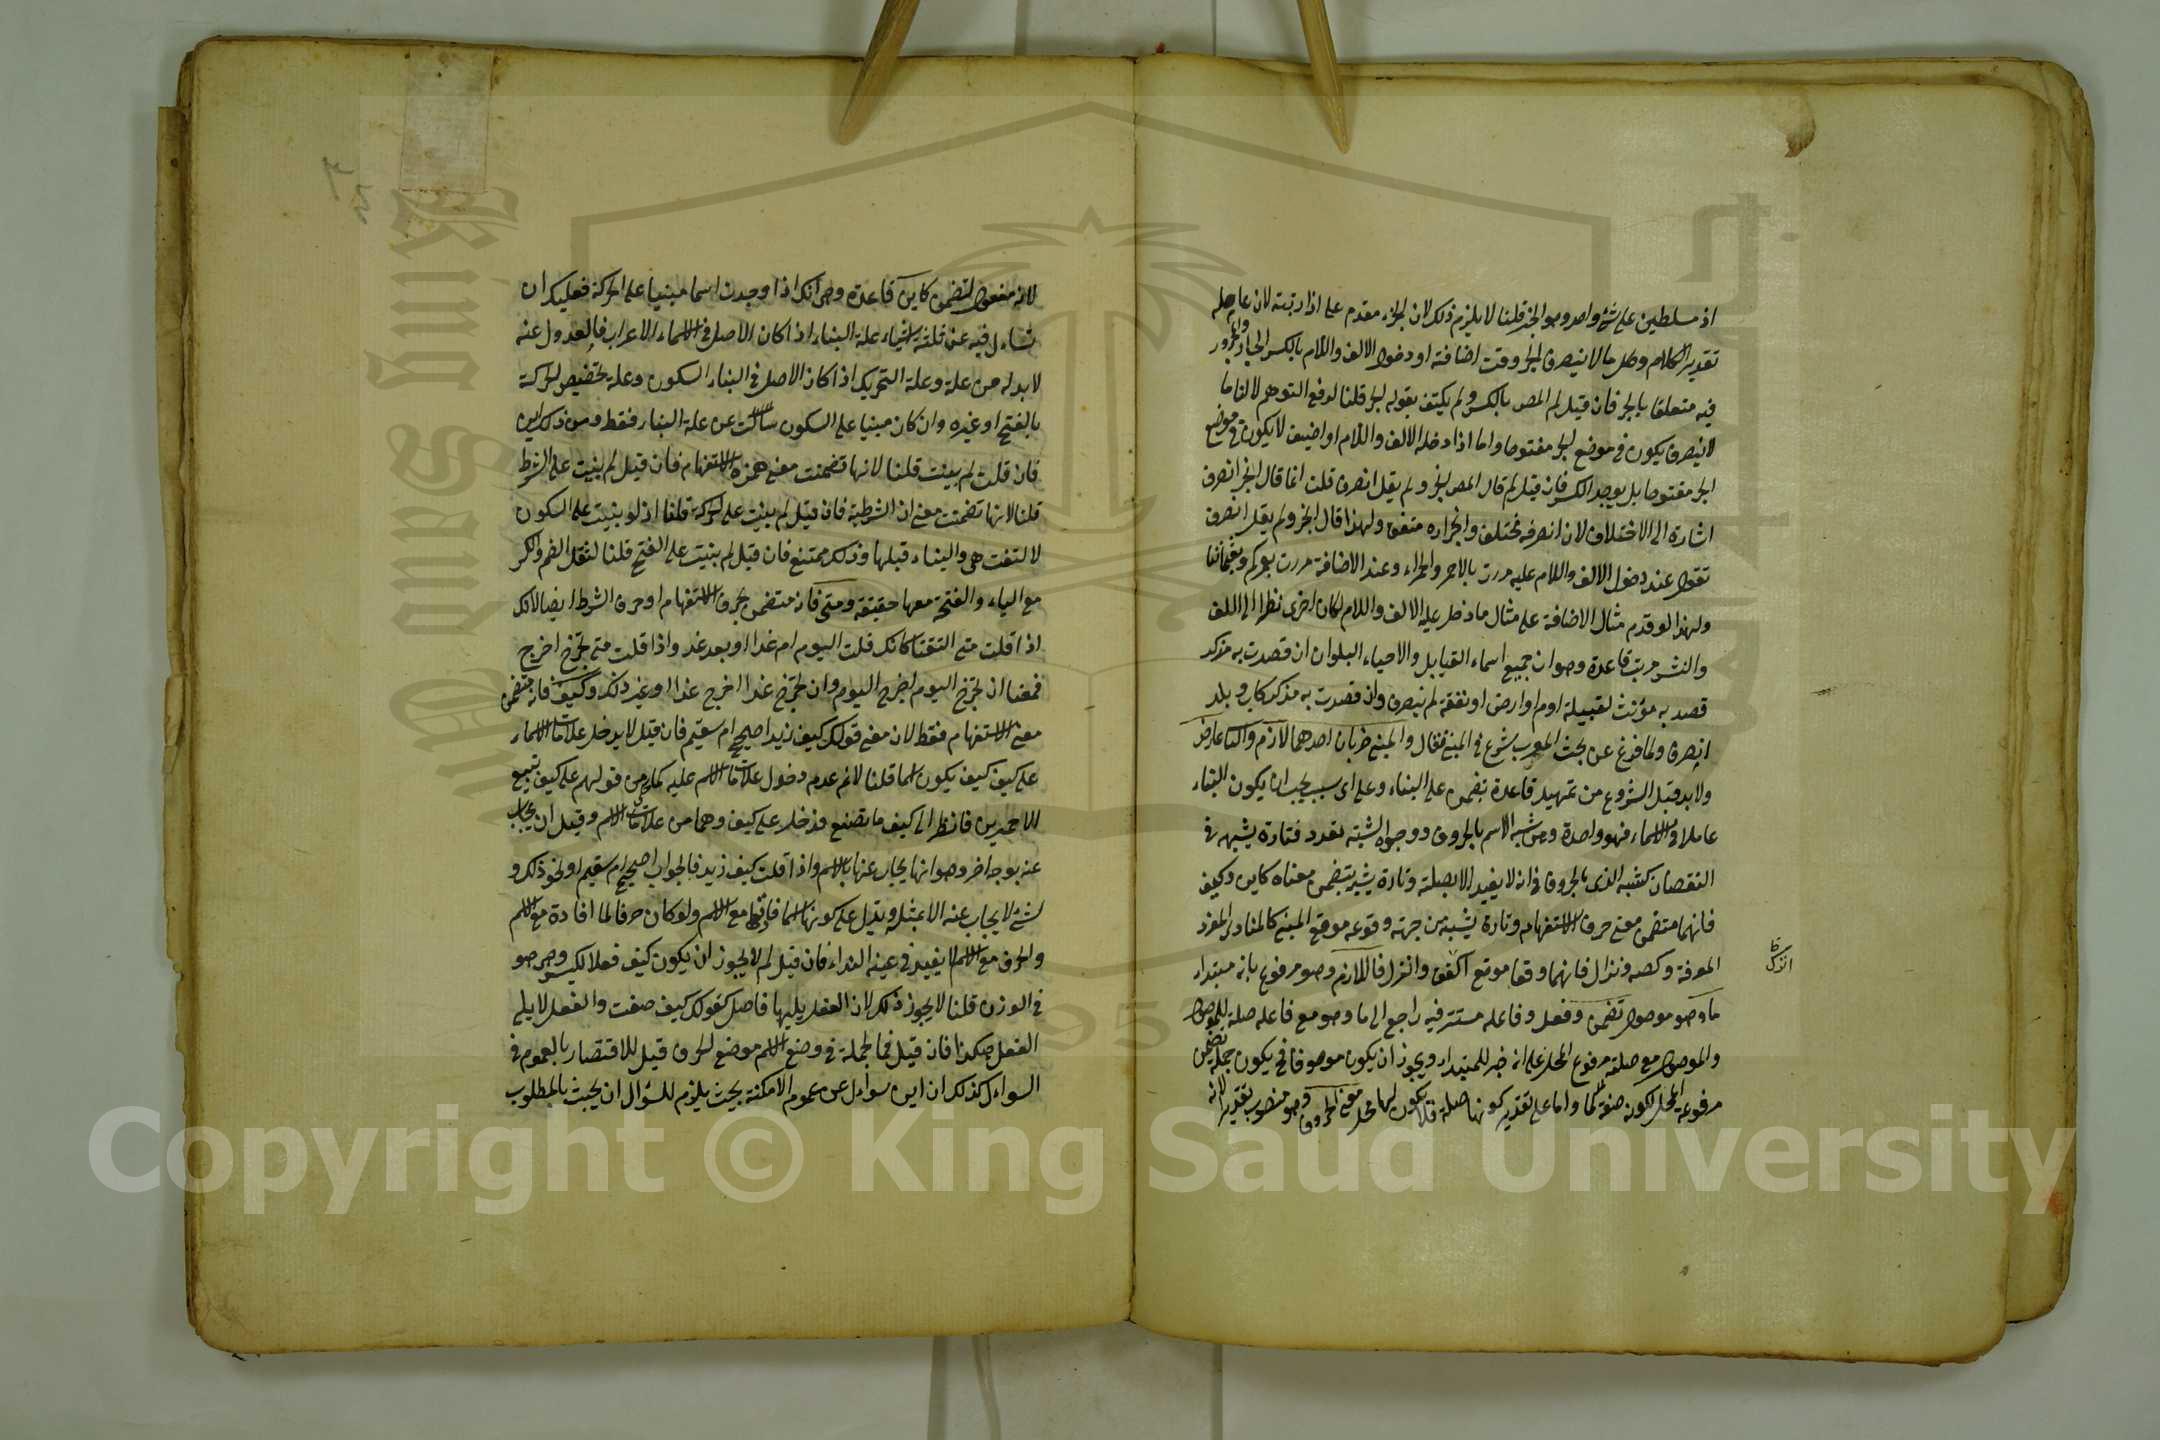 اذ مسلطين على شئ واحد وهو الجر قلنا لا يلزم ذلك لان الجزء مقدم على اذا رتبة لان عامله
تقدير الكلام وكل ما لا ينصرف انجر وقت اضافته او دخول الالف واللام بالكسر الجار والمجرور
فيه متعلقا بانجر فان قيل لم المص بالكسر ولم يكتف بقوله انجر قلنا لدفع التوهم لان ما
لا ينصرف يكون في موضع الجر مفتوحا واما اذا دخله الالف واللام او اضيف لا يكون في موضع
الجر مفتوحا بل يوجد الكسر فان قيل لم قال المص انجر ولم يقل انصرف قلت انما قال انجر انصرف
اشارة الى الاختلاف لان انصرفه مختلف وانجراره متفق ولهذا قال انجر ولم يقل انصرف
تقول عند دخول الالف واللام عليه مررت بالاحمر والحمراء وعند الاضافة مررت بعمركم وبعثماننا
ولهذا لو قدم مثال الاضافة على مثال ما دخل عليه الالف واللام لكان احرى نظرا الى اللف
والنشر مرت قاعدة وهو ان جميع اسماء القبايل والاحياء البلوان ان قصدت به مذكر
قصد به مؤنث لقبيلة او ام او ارض او نفقة لم ينصرف وان قصدت به مذكر كاب وبلد
انصرف ولما فرغ عن بحث المعرب شرع في المبنى فقال والمبنى ضربان احدهما لازم والثانى عارض
ولا بد قبل الشروع من تمهيد قاعدة تفهمى على البناء وعلى اى سبب يجب ان يكون البناء
عاملا في الاسماء فهو واحدة وهى شبه الاسم بالحروف ووجوه الشبه تعدد فتارة يشبهه في
النقصان كشبه الذى بالحروف في انه لا يفيد الا بصلته وتارة يشبه بتضمن معناه كاين وكيف
فانهما متضمن معنى حرف الاستفهام وتارة يشبه من جهة وقوعه موقع المبنى كالمنادى المفرد
المعرفة وكصه ونزال فانهما وقعا موقع اكفف وانزل فاللازم وهو مرفوع بانه مبتداء
ما وهو موصول تضمن وفعل وفاعله مستتر فيه راجع الى ما وهو مع فاعله صلة للموصول
والموصول مع صلته مرفوع المحل على انه خبر للمبتداء ويجوز ان يكون موصوفا فح يكون جملة تضمن
مرفوعة المحل لكونه صفة لما واما على تقدير كونها صلة فلا يكون لها محل معنى الحروف وهو منصوب بتقدير لانه
لانه مفعول لتضمن كاين قاعدة وهى انك اذا وجدت اسما مبنيا على الحركة فعليك ان
تسأل فيه عن ثلثة اشياء علة البناء اذا كان الاصل في الاسماء الاعراب فالعدول عنه
لا بد له من علة وعلة التحريك اذا كان الاصل في البناء السكون وعلة تخصيص الحركة
بالفتح او غيره وان كان مبنيا على السكون سألت عن علة البناء فقط ومن ذلك اين
فان قلت لم بينت قلنا لانها تضمنت معنى همزة الاستفهام فان قيل لم بنيت على الشرط
قلنا لانها تضمنت معنى ان الشرطية فان قيل لم بنيت على الحركة قلنا اذ لو بنيت على السكون
لالتقت هى والياء قبلها وذلك ممتنع فان قيل لم بنيت على الفتح قلنا لثقل الضم والكسر
مع الياء والفتحة معها حقيقة ومتى فانه متضمن حرف الاستفهام او حرف الشرط ايضا لانك
اذا قلت متى التقتا كانك قلت اليوم ام غدا او بعد غد واذا قلت متى تخرج اخرج
فمعنا ان تخرج اليوم اخرج اليوم وان تخرج غدا اخرج غدا او غير ذلك وكيف فانه متضمن
معنى الاستفهام فقط لان معنى قولك كيف زيد اصحيح ام سقيم فان قيل لا يدخل علامات الاسماء
على كيف كيف يكون اسما قلنا لا نم عدم دخول علامات الاسم عليه كما من قولهم على كيف تبيع
الاحمرين فانظر الى كيف ما تصنع فدخلا على كيف وهما من علامات الاسم وقيل ان يجاب
عنه بوجه اخر وهو انها يجاب عنها بالاسم واذا قلت كيف زيد فالجواب اصحيح ام سقيم او نحو ذلك و
لشئ لا يجاب عنه الا بمثله ويدل على كونها اسما فائدتها مع الاسم ولو كان حرفا لما افادة مع الاسم
والحرف مع الاسم لا يفيد في عينه النداء فان قيل لم لا يجوز ان يكون كيف فعلا كليس وهو
في الوزن قلنا لا يجوز ذلك لان الفعل يليها فاصل كقولك كيف صنعت والفعل لا يلى
الفعل هكذا فان قيل فما الجملة في وضع الاسم موضع الحرف قيل للاقتصار بالعموم في
السواءل كذلك ان اين سواءل عن عموم الامكنة بحيث يلزم للسؤال ان يجيب بالمطلوب
Copyright © King Saud University